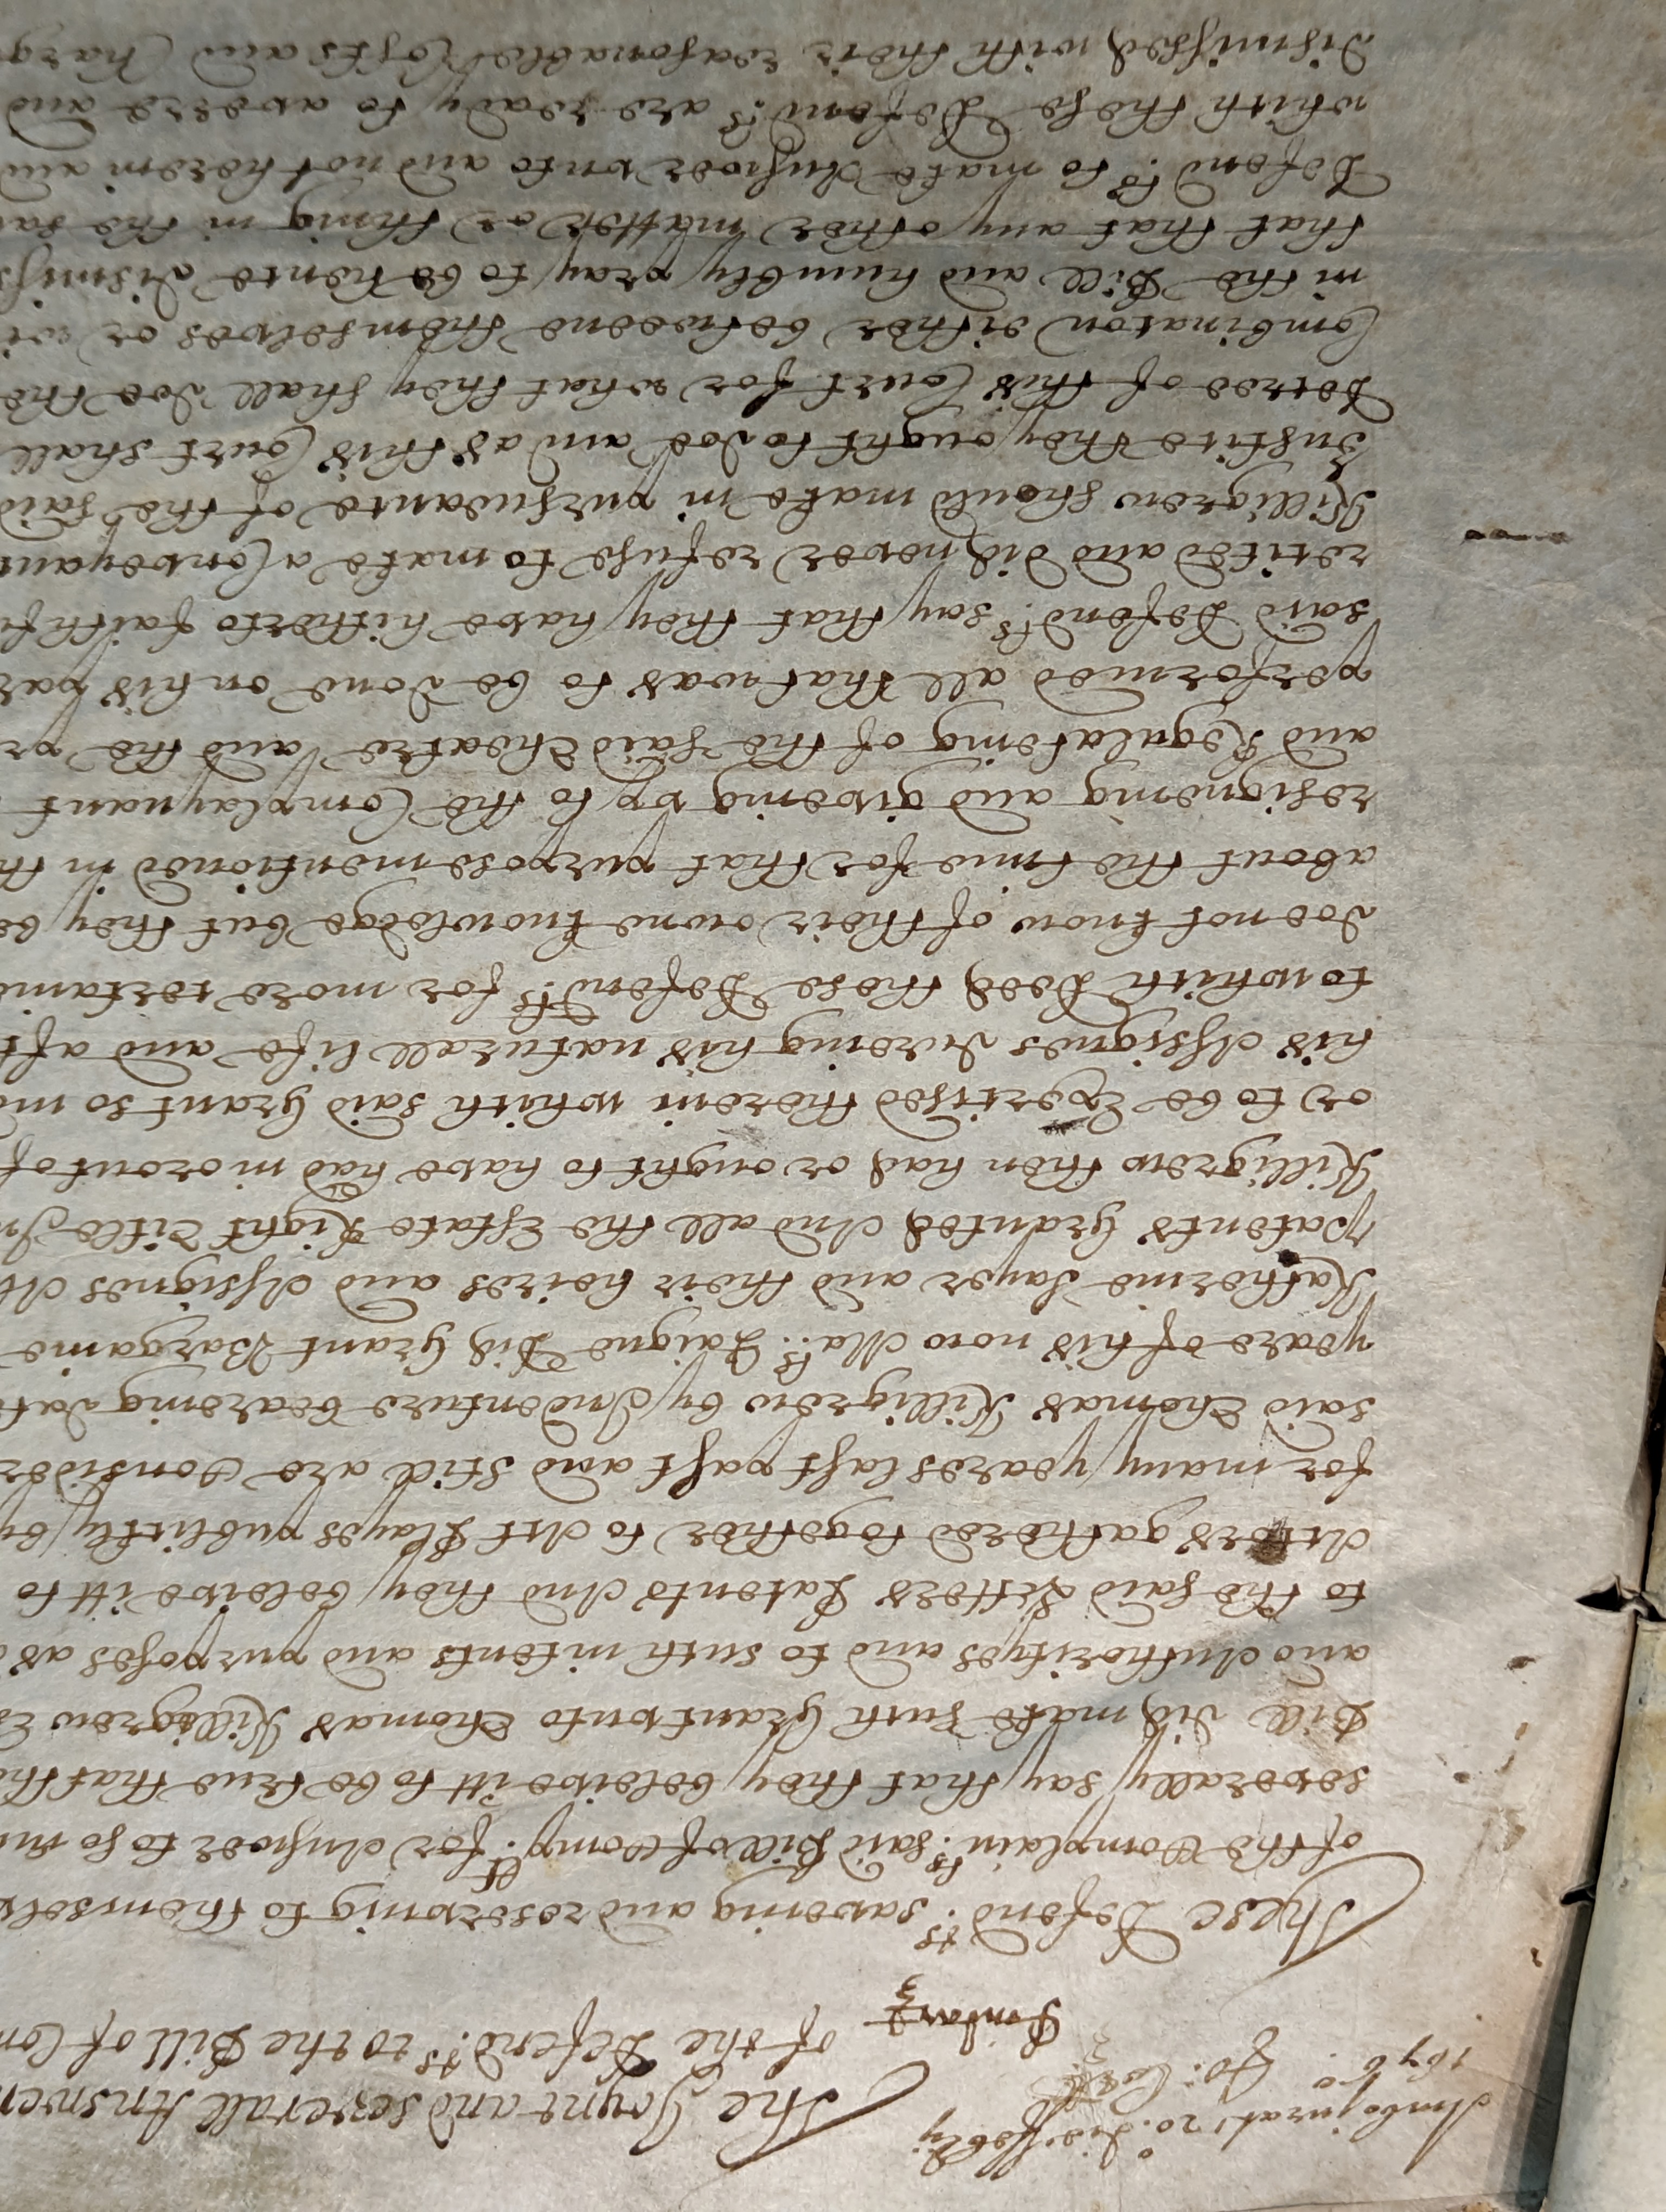 Ambo jurat 20.° die ffebry
1676.° Jo: Coell
Lindar
The Joynt and severall Answer
of the Defend.ts to the Bill of Com
These Defend.ts saveing and reserving to themselv
of the Complain.ts said Bill of Comp.lt for Answer to so mu
severally say that they beleive itt to be true that the
Bill did make such Grant unto Thomas Killigrew Es
and Authorityes and to such intents and purposes as
to the said Letters Patents And they beleive itt to
Actors gathered together to Act Playes publickly by
for many yeares last past and still are Consider
said Thomas Killigrew by Indenture beareing date
yeare of his now Ma.ts Raigne Did Grant Bargaine
Katherine Sayer and their heires and Assignes
Patents Granted And all the Estate Right Title In
Killigrew then had or ought to have had in or out of
or to be Exercised therein which said Grant so m
his Assignes dureing his naturall life and aft
to which Deed these Defend.ts for more certaine
doe not know of their owne knowledge but they be
about the time for that purpose mentioned in th
resigneing and giveing vp to the Complaynant
and Regulateing of the said Theatre and the pr
performed all that was to be done on his par
said Defend.ts say that they have hitherto faithfu
recited and did never refuse to make a Conveyan
Killigrew should make in pursuance of the said
Justice they ought to doe and as this Court shall
Decree of this Court for what they shall doe the
Combinacon either betweene themselves or wi
in the Bill and humbly pray to be hence dismiss
that that any other matter or thing in the sai
Defend.ts to make Answer vnto and not herein and
which these Defend.ts are ready to averre and
dismissed with their reasonable Costs and Charge